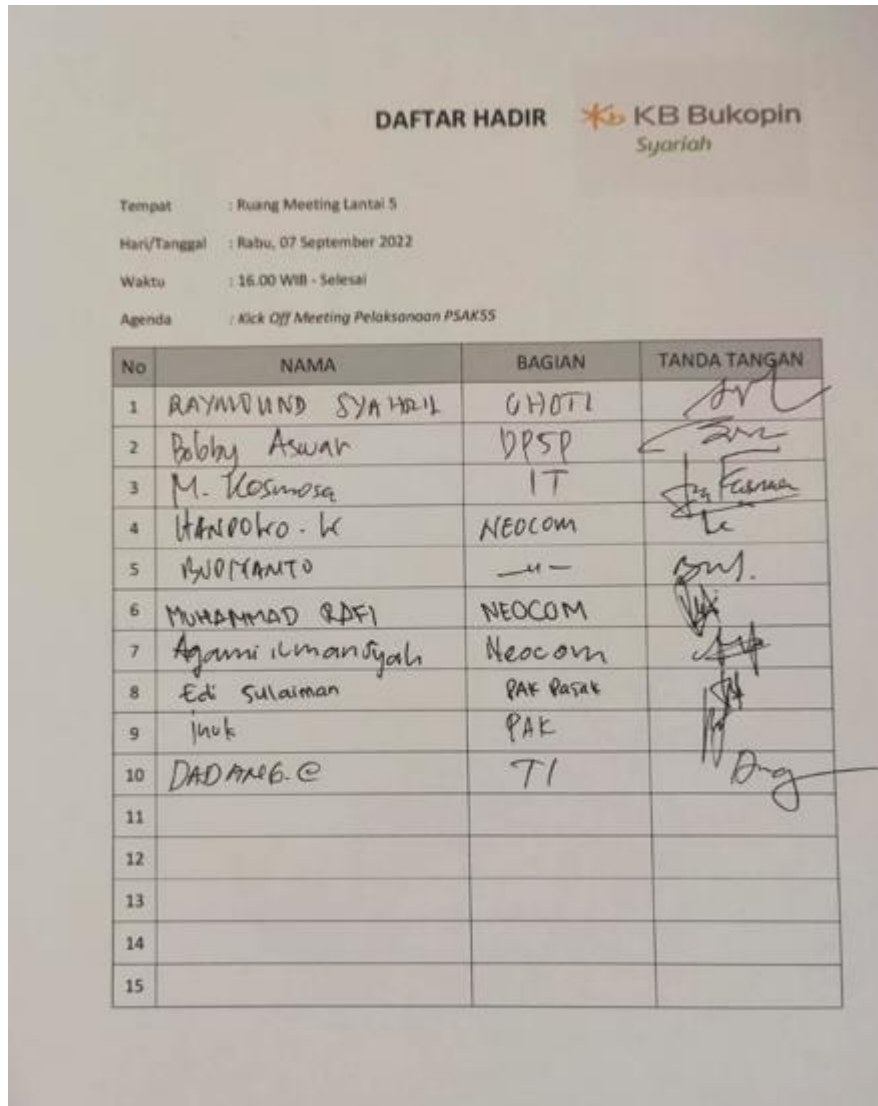 DAFTAR HADIR
KB Bukopin
Syariah
Tempat : Ruang Meeting Lantai 5
Hari/Tanggal : Rabu, 07 September 2022
Waktu : 16.00 WIB - Selesai
Agenda : Kick Off Meeting Pelaksanaan PSAK55
No NAMA BAGIAN TANDA TANGAN
1 RAYMOUND SYAHRIL
2 Bobby Aswan DPSP
3 M. Kosmosa IT
4 HANDOKO. K NEOCOM
5 BUDIYANTO —u—
6 MUHAMMAD RAFI NEOCOM
7 Agami ilmansyah Neocom
8 Edi Sulaiman PAK Pasak
9 inuk PAK
10 DADANG. TI
11
12
13
14
15